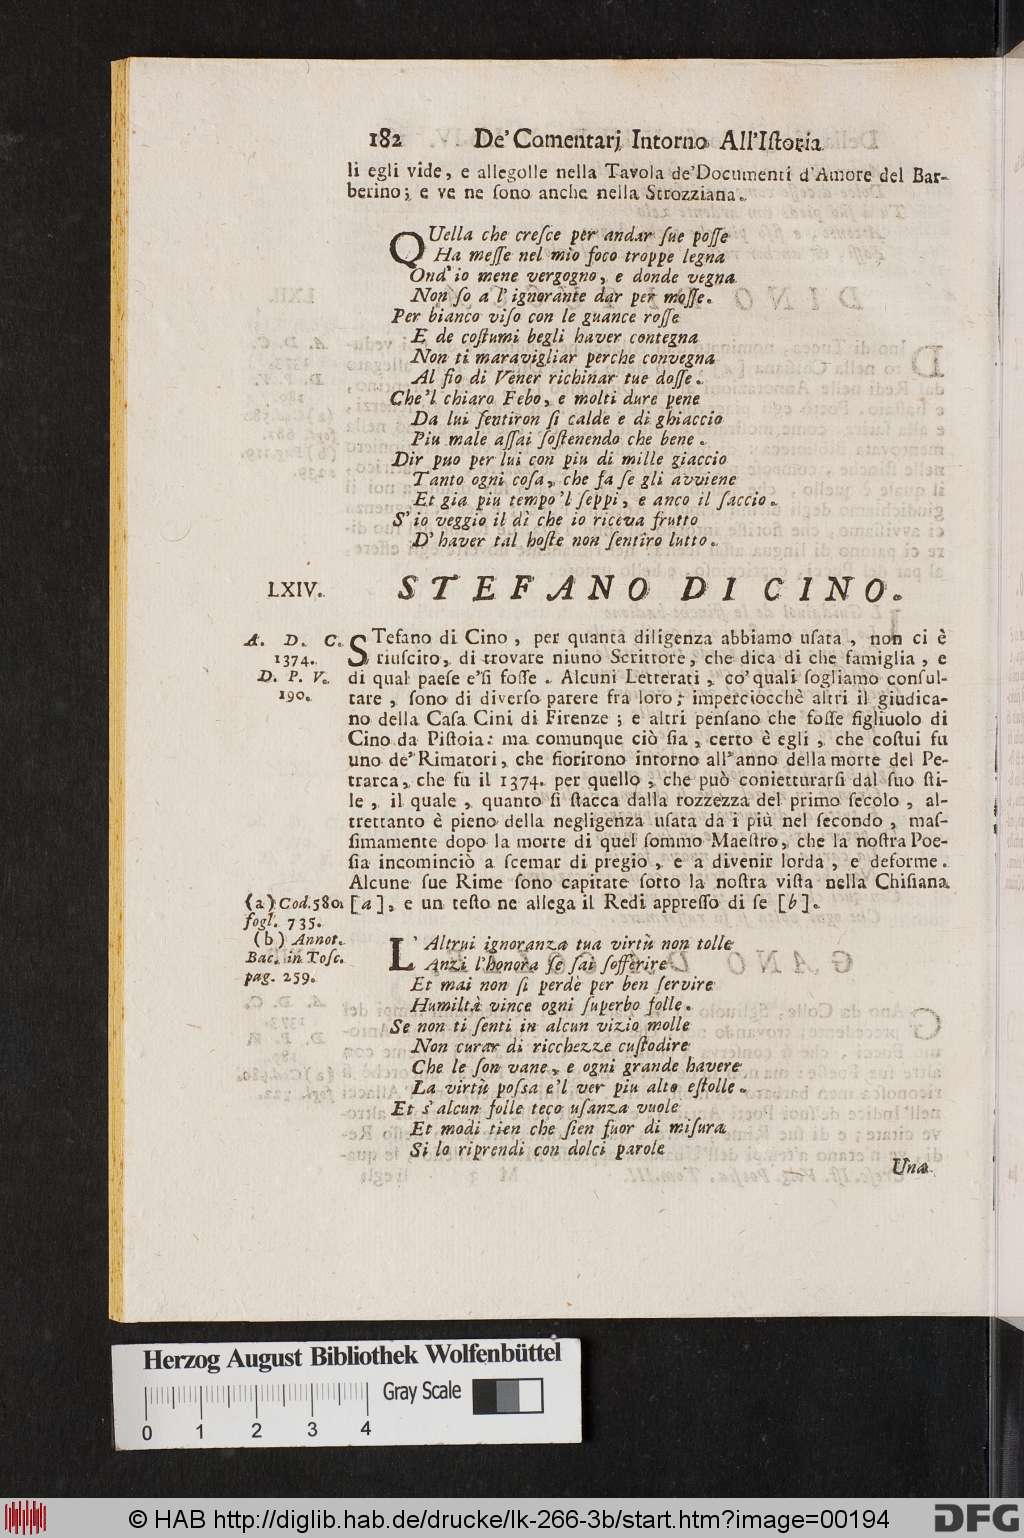 182 De' Comentarj Intorno All'Iſtoria
li egli vide, e allegolle nella Tavola de'Documenti d'Amore del Bar-
berino; e ve ne ſono anche nella Strozziana.
QUella che creſce per andar ſue poſſe
Ha meſſe nel mio foco troppe legna
Ond'io mene vergogno, e donde vegna
Non ſo a l'ignorante dar per moſſe.
Per bianco viſo con le guance roſſe
E de coſtumi begli haver contegna
Non ti maravigliar perche convegna
Al fio di Vener richinar tue doſſe.
Che'l chiaro Febo, e molti dure pene
Da lui ſentiron ſi calde e di ghiaccio
Piu male aſſai ſoſtenendo che bene.
Dir puo per lui con piu di mille giaccio
Tanto ogni coſa, che fa ſe gli avviene
Et gia piu tempo'l ſeppi, e anco il ſaccio.
S'io veggio il dì che io riceva frutto
D'haver tal hoſte non ſentîro lutto.
LXIV. STEFANO DI CINO.
A. D. C.
1374.
D. P. V.
190.
STefano di Cino, per quanta diligenza abbiamo uſata, non ci è
riuſcito, di trovare niuno Scrittore, che dica di che famiglia, e
di qual paeſe e'ſi foſſe. Alcuni Letterati, co'quali ſogliamo conſul-
tare, ſono di diverſo parere fra loro; imperciocchè altri il giudica-
no della Caſa Cini di Firenze; e altri penſano che foſſe figliuolo di
Cino da Piſtoia: ma comunque ciò ſia, certo è egli, che coſtui fu
uno de'Rimatori, che fiorirono intorno all'anno della morte del Pe-
trarca, che fu il 1374. per quello, che può conietturarſi dal ſuo ſti-
le, il quale, quanto ſi ſtacca dalla rozzezza del primo ſecolo, al-
trettanto è pieno della negligenza uſata da i più nel ſecondo, maſ-
ſimamente dopo la morte di quel ſommo Maeſtro, che la noſtra Poe-
ſia incominciò a ſcemar di pregio, e a divenir lorda, e deforme.
Alcune ſue Rime ſono capitate ſotto la noſtra viſta nella Chiſiana
[a], e un teſto ne allega il Redi appreſſo di ſe [b].
(a) Cod. 580.
fogl. 735.
(b) Annot.
Bac. in Toſc.
pag. 259.
L'Altrui ignoranza tua virtù non tolle
Anzi l'honora ſe ſai ſofferire
Et mai non ſi perdè per ben ſervire
Humiltà vince ogni ſuperbo folle.
Se non ti ſenti in alcun vizio molle
Non curar di ricchezze cuſtodire
Che le ſon vane, e ogni grande havere
La virtù poſſa e'l ver piu alto eſtolle.
Et s'alcun folle teco uſanza vuole
Et modi tien che ſien fuor di miſura
Si lo riprendi con dolci parole
Una
Herzog August Bibliothek Wolfenbüttel
Gray Scale
0 1 2 3 4
© HAB http://diglib.hab.de/drucke/lk-266-3b/start.htm?image=00194
DFG